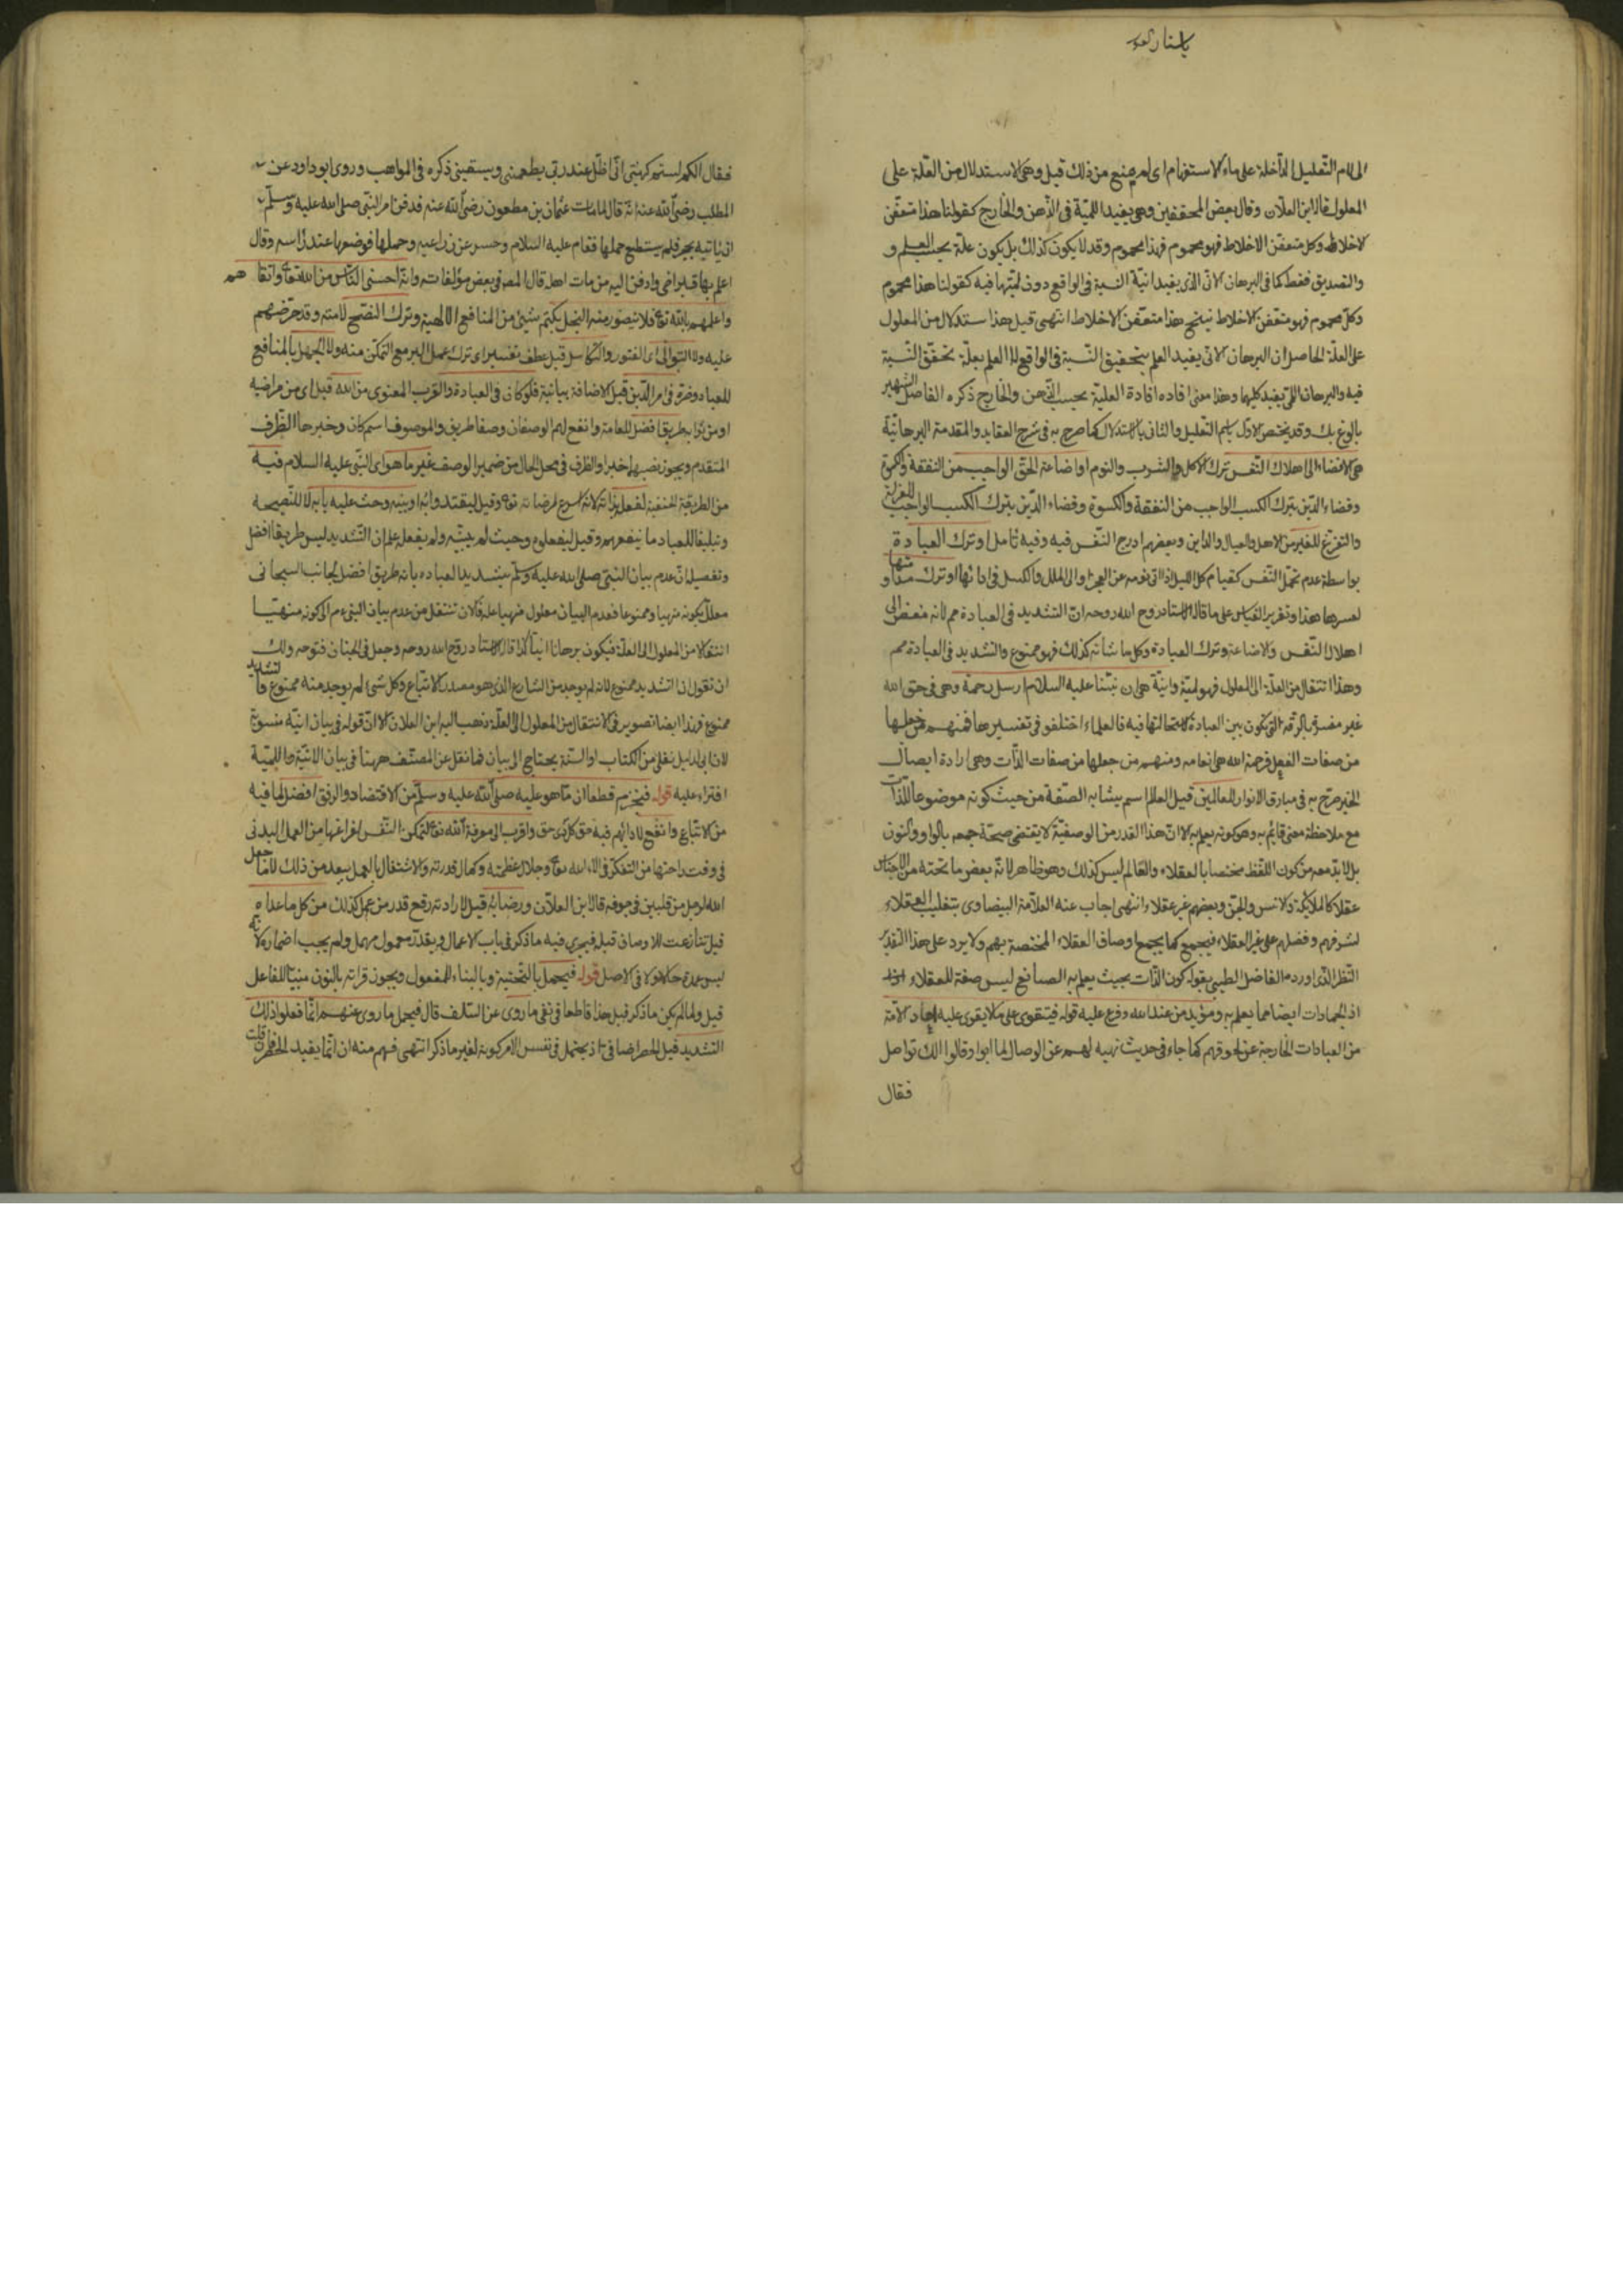 الى لام التعليل الداخلة على ماء الاستفهام اى لم منع من ذلك قيل وهى الاستدلال من العلة على
المعلول قاله ابن العلان وقال بعض المحققين وهى يفيد اللمية فى الذهن والخارج كقولنا هذا متعفن
الاخلاط وكل متعفن الاخلاط فهو محموم فهذا محموم وقد لا يكون كذلك بل يكون علة بحسب العلم و
والتصديق فقط كما فى البرهان الانى الذى يفيد انية النسبة فى الواقع دون لميتها فيه كقولنا هذا محموم
وكل محموم فهو متعفن الاخلاط ينتج هذا متعفن الاخلاط انتهى قيل هذا استدلال من المعلول
على العلة الحاصل ان البرهان الانى يفيد العلم بتحقيق النسبة فى الواقع لا العلم بعلة تحقق النسبة
فيه والبرهان اللمى يفيد كليهما وهذا معنى افاده افادة العلية بحسب الذهن والخارج ذكره الفاضل الشهير
بالوغ بك وقد يختص الاول باسم التعليل والثانى بالاستدلال كما صرح به فى شرح العقايد والمقدمة البرهانية
هى الافضاء الى اهلاك النفس بترك الاكل والشرب والنوم او اضاعة الحق الواجب من النفقة والكسوة
وقضاء الدين بترك الكسب الواجب من النفقة والكسوة وقضاء الدين بترك الكسب الواجب
والتفريغ للغير من الاهل والعيال والداين وبعضهم ادرج النفس فيه وفيه تامل او ترك العبادة
بواسطة عدم تحمل النفس كقيام كل الليل الى العجز او الى الملل والكسل فى ادائها او ترك
لعسرها هذا وتقرير القياس على ما قاله الاستاد روح الله روحه ان التشديد فى العبادة مم لانه مفضى الى
اهلاك النفس والاضاعة وترك العبادة وكل ما شانه كذلك فهو ممنوع والتشديد فى العبادة مم
وهذا انتقال من العلة الى المعلول فهو لمية وانية هى ان نبينا عليه السلام ارسل رحمة وهى فى حق الله
غير مفسرة بالرقة التى تكون بين العباد لاستحالتها فيه فالعلماء اختلفو فى تفسيرها فمنهم من جعلها
من صفات الفعل فرحمة الله هى انعامه ومنهم من جعلها من صفات الذات وهى ارادة ايصال
الخير صرح به فى مبارق الانوار للعالمين قيل العالم اسم يشابه الصفة من حيث كونه موضوعا للذات
مع ملاحظة معنى قائم به وهو كونه يعلم به الا ان هذا القدر من الوصفية لا يقتضى صحة جمعه بالواو والنون
بل لابد معه من كون اللفظ مختصا بالعقلاء والعالم ليس كذلك وهو ظاهر لانه بعض ما تحته من الاجناس
عقلا كالملائكة والانس والجن وبعضهم غير عقلاء انتهى اجاب عنه العلامة البيضاوى بتغليب العقلاء
لشرفهم وفضلهم على غير العقلاء فيجمع كما يجمع اوصاف العقلاء المختصة بهم ولا يرد على هذا التقدير
النظر الذى اورده الفاضل الطيبى بقوله كون الذات بحيث يعلم به الصانع ليس صفة للعقلاء
اذ الجمادات ايضا مما يعلم به ومؤيد من عند الله وفرع عليه قوله فيتقوى على ما لا يقوى عليه احاد الامة
من العبادات الخارجة عن طوقهم كما جاء فى حديث نهيه لهم عن الوصال لما ابوا وقالوا انك تواصل
فقال
فقال انكم لستم كهيئتى انى اظل عند ربى يطعمنى ويسقينى ذكره فى المواهب وروى ابو داود عن
المطلب رضى الله عنه انه قال لما مات عثمان بن مظعون رضى الله عنه فدفن امر النبى صلى الله عليه وسلم
ان ياتيه بحجر فلم يستطع حملها فقام عليه السلام وحسر عن ذراعيه وحملها فوضعها عند رأسه وقال
اعلم بها قبر اخى وادفن اليه من مات اهله قال المصر فى بعض مؤلفاته وانه اخشى الناس من الله تعالى واتقاهم
واعلمهم بالله تعالى فلا يتصور منه البخل بكتم شئ من المنافع الالهية وترك النصح لامته وقد حرضهم
عليه ولا التوانى اى الفتور والتكاسل قيل عطف تفسير اى ترك عمل البر مع التمكن منه ولا الجهل بالمنافع
للعباد وضرة فى امر الدين قيل الاضافة بيانية فلو كان فى العبادة والقرب المعنوى من الله قيل اى من مراضيه
او من ثوابه طريق افضل للعامة وانفع لهم الوصفان وصفا طريق والموصوف اسم كان وخبرها الظرف
المتقدم ويجوز نصبهما خبرا والظرف فى محل الحال من ضمير الوصف غير ما هو اى النبى عليه السلام فيه
من الطريقة الحنفية لفعله بذاته لانه اسرع لمرضاته تعالى وقيل ليقتدوا به او بينه وحث عليه بابه لا للنصيحة
وتبليغا للعباد ما ينفعهم وقيل ليفعلوه وحيث لم يبينه ولم يفعله علم ان التشديد ليس طريقا افضل
وتفصيل ان عدم بيان النبى صلى الله عليه وسلم بتشديد العباده بانه طريق افضل لجانب السبحانى
معلل بكونه منهيا وممنوعا فعدم البيان معلول منهيا علة فالان تنتقل من عدم بيان النبى عم الى كونه منهيا
انتقالا من المعلول الى العلة فيكون برهانا انيا كذا قاله الاستاد روح الله روحه وجعل فى الجنان فتوحه ولك
ان تقول ان التشديد ممنوع لانه لم يوجد من الشارع الذى هو مصدر الاتباع وكل شئ لم يوجد منه ممنوع فالتشديد
ممنوع فهذا ايضا تصوير فى الانتقال من المعلول الى العلة ذهب اليه ابن العلان الا ان قوله فى بيان انيه
لان اى لدليل نقلى من الكتاب او السنة يحتاج الى بيان فما نقل عن المصنف ههنا فى بيان الانية واللمية
افتراء عليه قوله فيجزم قطعا ان ما هو عليه صلى الله عليه وسلم من الاقتصاد والرفق افضل لما فيه
من الاتباع وانفع لادائهم فيه حق كل ذى حق واقرب الى معرفة الله تعالى لتمكن النفس لفراغها من العمل البدنى
فى وقت راحتها من التفكر فى الاء الله تعالى وجلال عظمته وكمال قدرته والاشتغال بالعمل يبعد من ذلك لانه ما جعل
الله لرجل من قلبين فى جوفه قاله ابن العلان ورضائه قيل لارادته رفع قدر من عمل كذلك من كل ما عداه
قيل تنازعت الاوصاف قبله فيجرى فيه ما ذكر فى باب الاعمال ويقدر معمول مهمل ولم يجب اضماره لانه
ليس عمدة حالا ولا فى الاصل قوله فيحمل بالتحتية وبالبناء للمفعول ويجوز قراته بالنون مبنيا للفاعل
قيل ولما لم يكن ما ذكر قبيل هذا قاطعا فى نفى ما روى عن السلف قال فيحمل ما روى عنهم انما فعلوا ذلك
التشديد قيل الحصر اضافى اذ يحتمل فى نفس الامر كونه لغير ما ذكر انتهى فهم منه ان انما يفيد الحصر قلت